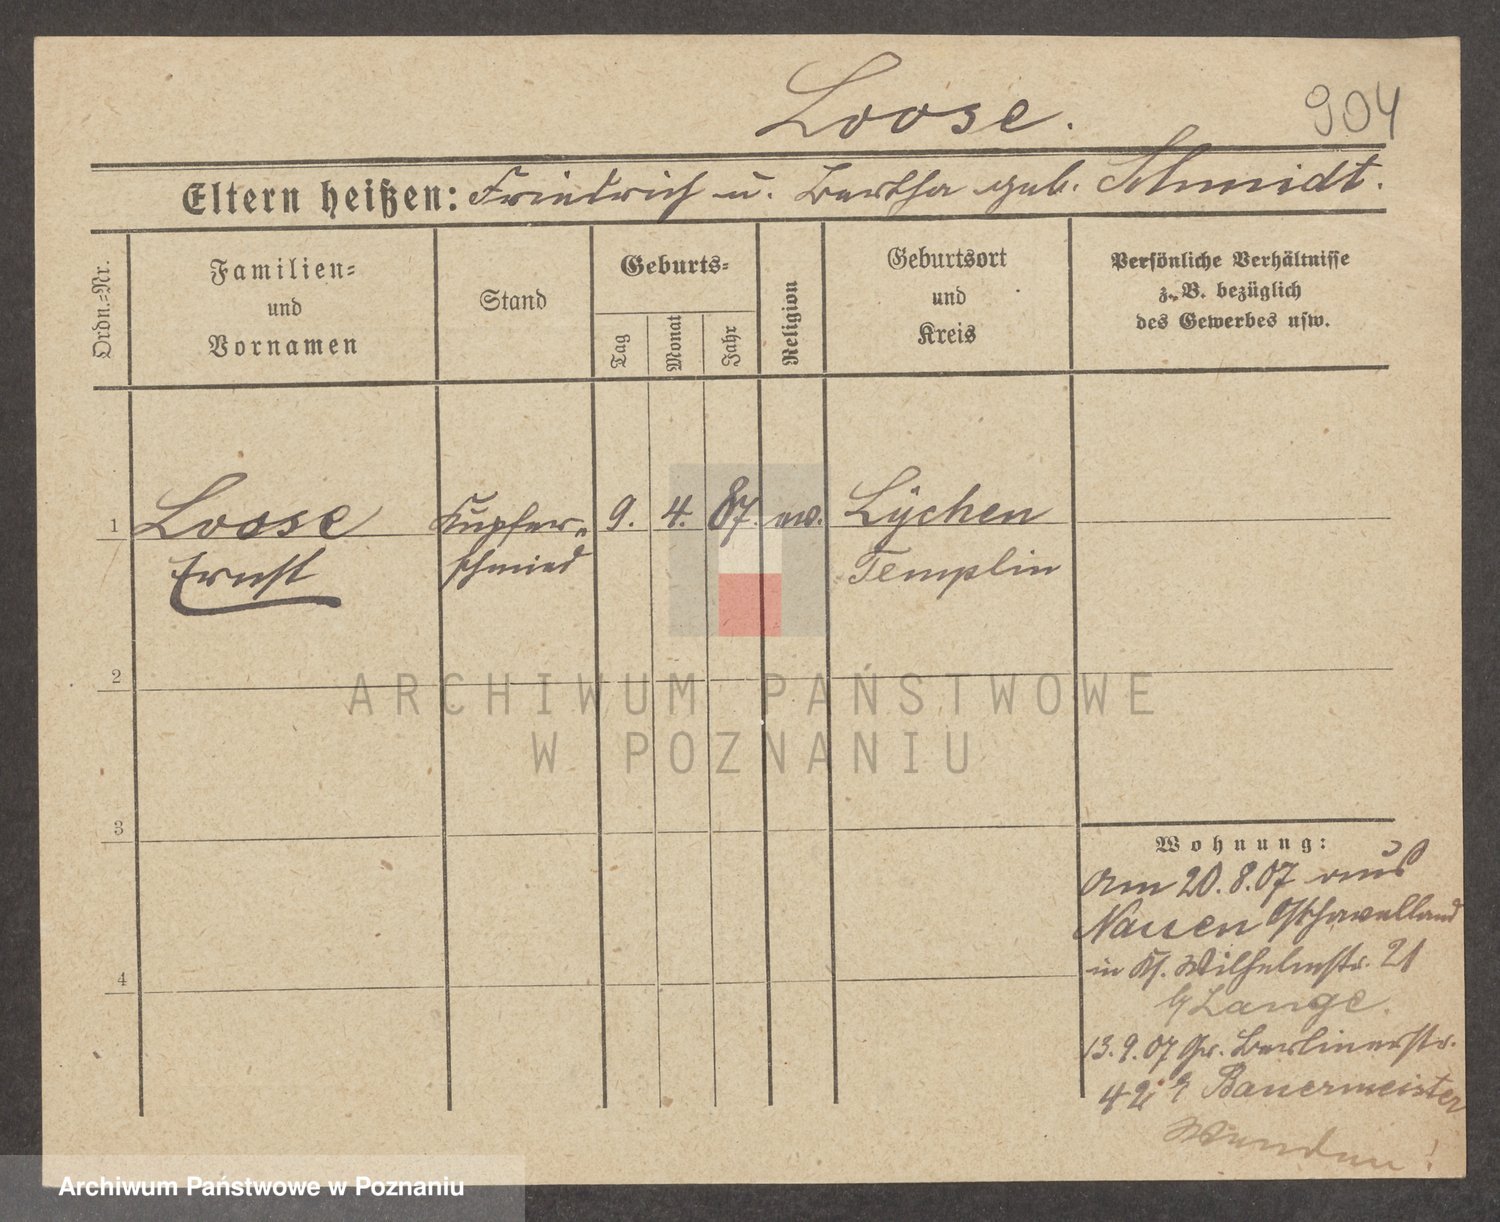 Loose.
904
Eltern heißen: Friedrich u. Bertha geb. Schmidt.
Ordn.-Nr.
Familien-
und
Vornamen
Stand
Geburts-
Tag
Monat
Jahr
Religion
Geburtsort
und
Kreis
Persönliche Verhältnisse
z. B. bezüglich
des Gewerbes usw.
1
Loose Kupfer- 9. 4. 87. ev. Lychen
Ernst schmied Templin
2
ARCHIWUM PAŃSTWOWE
W POZNANIU
3
Wohnung:
Am 20.8.07 aus
Nauen Osthavelland
4
in Kl. Wilhelmstr. 21
Lange.
13.9.07 Gr. Berlinerstr.
42 Bauermeister
Archiwum Państwowe w Poznaniu